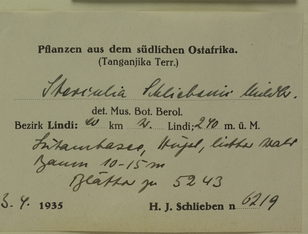 Pflanzen aus dem südlichen Ostafrika.
(Tanganjika Terr.)
Sterculia Schliebenii Mildbr.
det. Mus. Bot. Berol.
Bezirk Lindi: 40 km W. Lindi; 240 m. ü. M.
Lutamba-See, Hügel, lichter Wald
Baum 10-15 m
Blätter zu 5243
3. 4. 1935 H. J. Schlieben n 6219